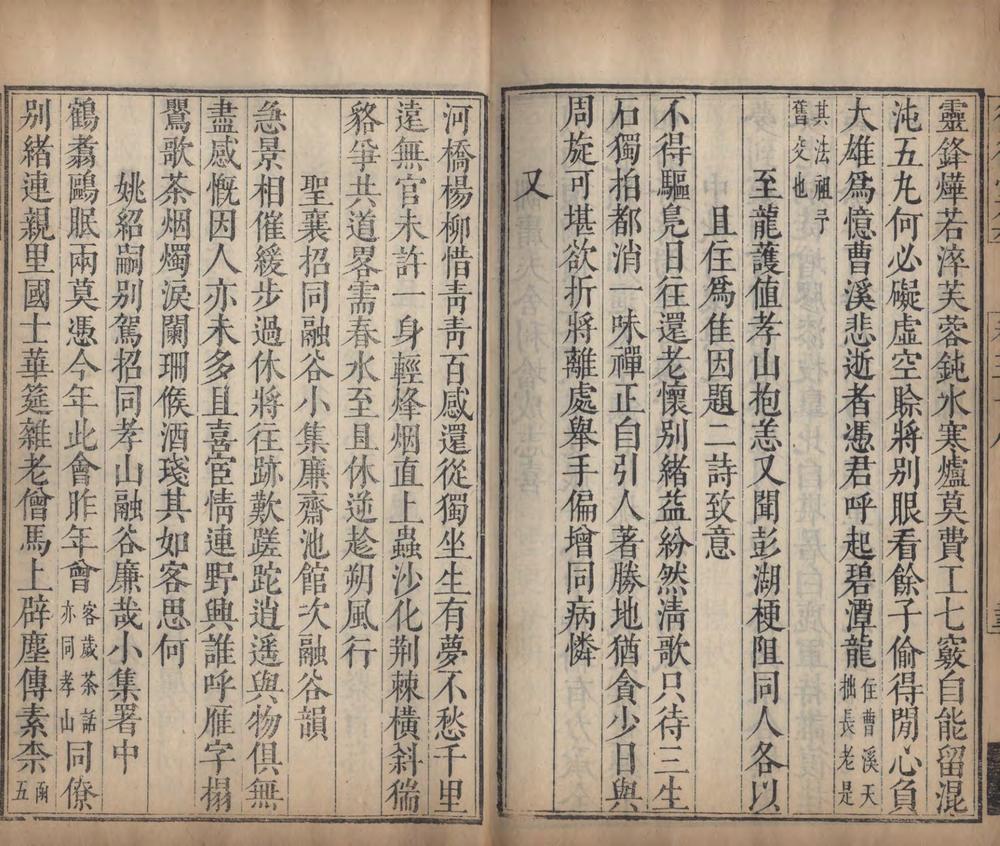 靈鋒燁若淬芙蓉鈍水寒爐莫費工七竅自能留混
沌五九何必礙虛空賒將別眼看餘子偷得閒心負
大雄為憶曹溪悲逝者憑君呼起碧潭龍住曹溪天拙長老是
其法祖予舊交也
至龍護值孝山抱恙又聞彭湖梗阻同人各以
且住為佳因題二詩致意
不得驅凫日往還老懷別緒益紛然清歌只待三生
石獨拍都消一味禪正自引人著勝地猶貪少日與
周旋可堪欲折將離處舉手偏增同病憐
又
河橋楊柳惜青青百感還從獨坐生有夢不愁千里
遠無官未許一身輕烽烟直上蟲沙化荆棘橫斜猯
貉爭共道畧需春水至且休逆趁朔風行
聖襄招同融谷小集廉齋池館次融谷韻
急景相催緩步過休將往跡歎蹉跎逍遥與物俱無
盡感慨因人亦未多且喜宦情連野興誰呼雁字搨
鸎歌茶烟燭淚闌珊候酒琖其如客思何
姚紹嗣別駕招同孝山融谷廉哉小集署中
鶴翥鷗眠兩莫憑今年此會昨年會客歲茶話亦同孝山同僚
別緒連親里國士華筵雜老僧馬上辟塵傳素柰函五